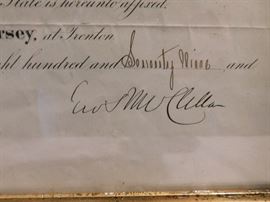 State is hereunto affixed.
rsey, at Trenton
ght hundred and Seventy Nine and
Geo B McClellan